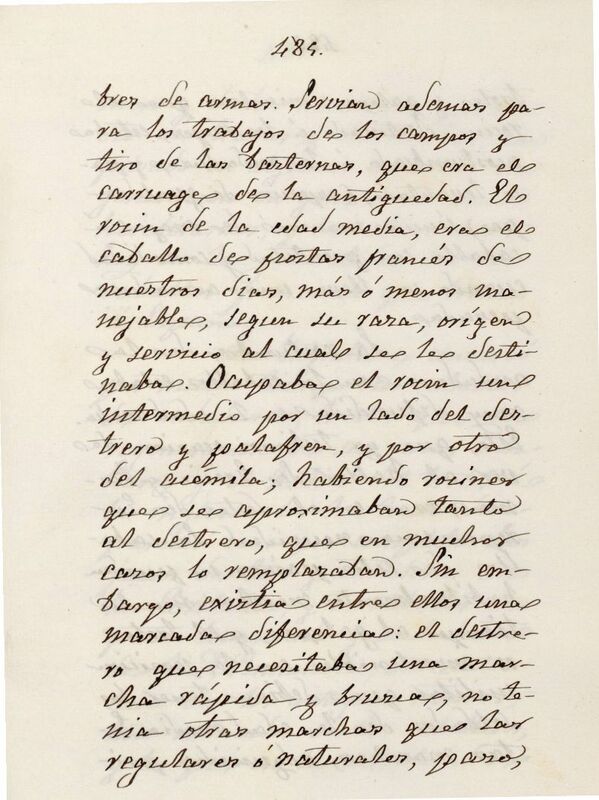 485.
bres de armas. Servian ademas pa-
ra los trabajos de los campos y
tiro de las basternas, que era el
carruage de la antigüedad. El
rocin de la edad media, era el
caballo de postas francés de
nuestros dias, más ó menos ma-
nejable, segun su raza, orígen
y servicio al cual se le desti-
naba. Ocupaba el rocin un
intermedio por un lado del des-
trero y palafren, y por otro
del acémila; habiendo rocines
que se aproximaban tanto
al destrero, que en muchos
casos lo remplazaban. Sin em-
bargo, existia entre ellos una
marcada diferencia: el destre-
ro que necesitaba una mar-
cha rápida y brusca, no te-
nia otras marchas que las
regulares ó naturales, paso,